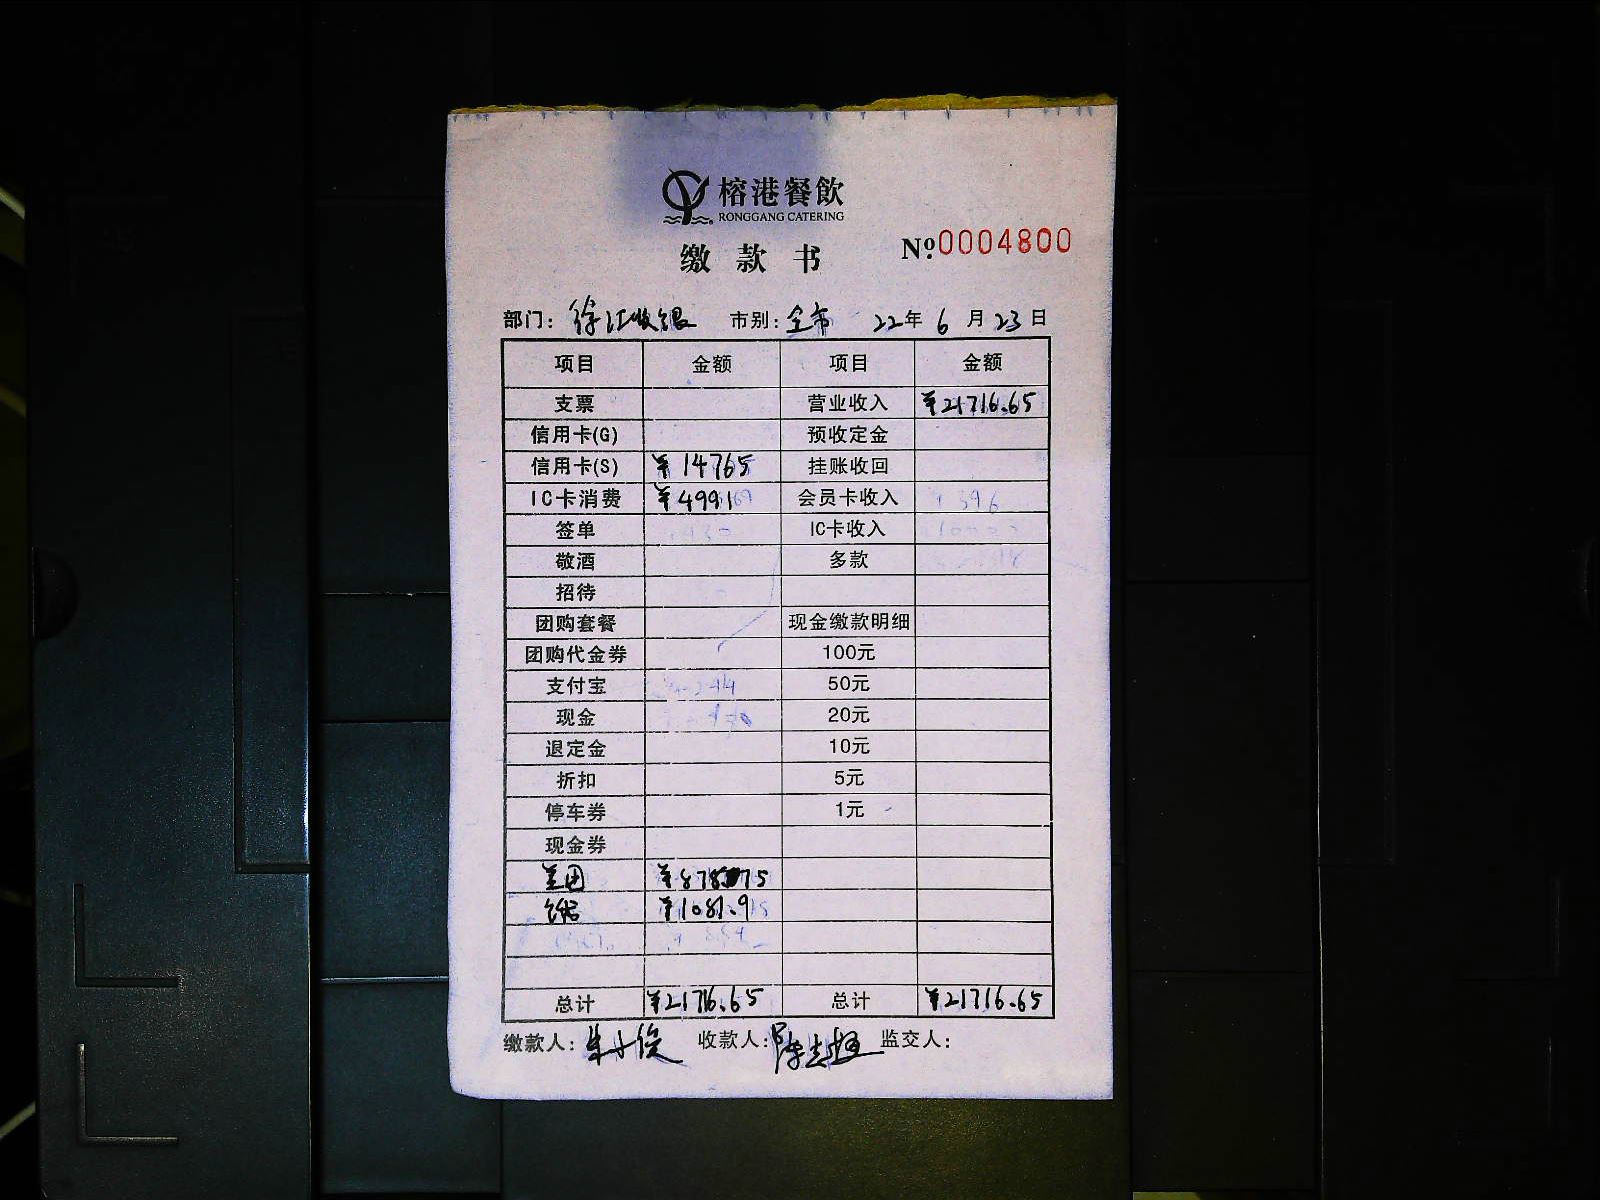 榕港餐飲
RONGGANG CATERING
缴款书
№0004800
部门：徐汇收银 市别：全市 22年6月23日
项目 金额 项目 金额
支票 营业收入 ¥21716.65
信用卡(G) 预收定金
信用卡(S) ¥14765 挂账收回
IC卡消费 ¥4991 会员卡收入
签单 IC卡收入
敬酒 多款
招待
团购套餐 现金缴款明细
团购代金券 100元
支付宝 50元
现金 20元
退定金 10元
折扣 5元
停车券 1元
现金券
美团 ¥878.75
¥1081.9
总计 ¥21716.65 总计 ¥21716.65
缴款人：朱小俊 收款人： 监交人：